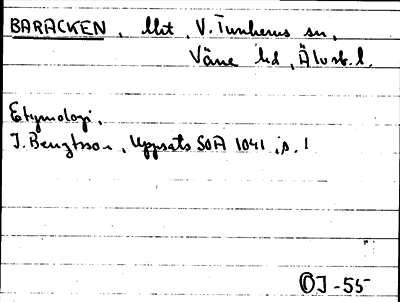 BARACKEN, lht, V. Tunhems sn,
Väne hd, Älvsb. l.
Etymologi.
J. Bengtsson, Uppsats SOA 1041, s. 1
OJ -55